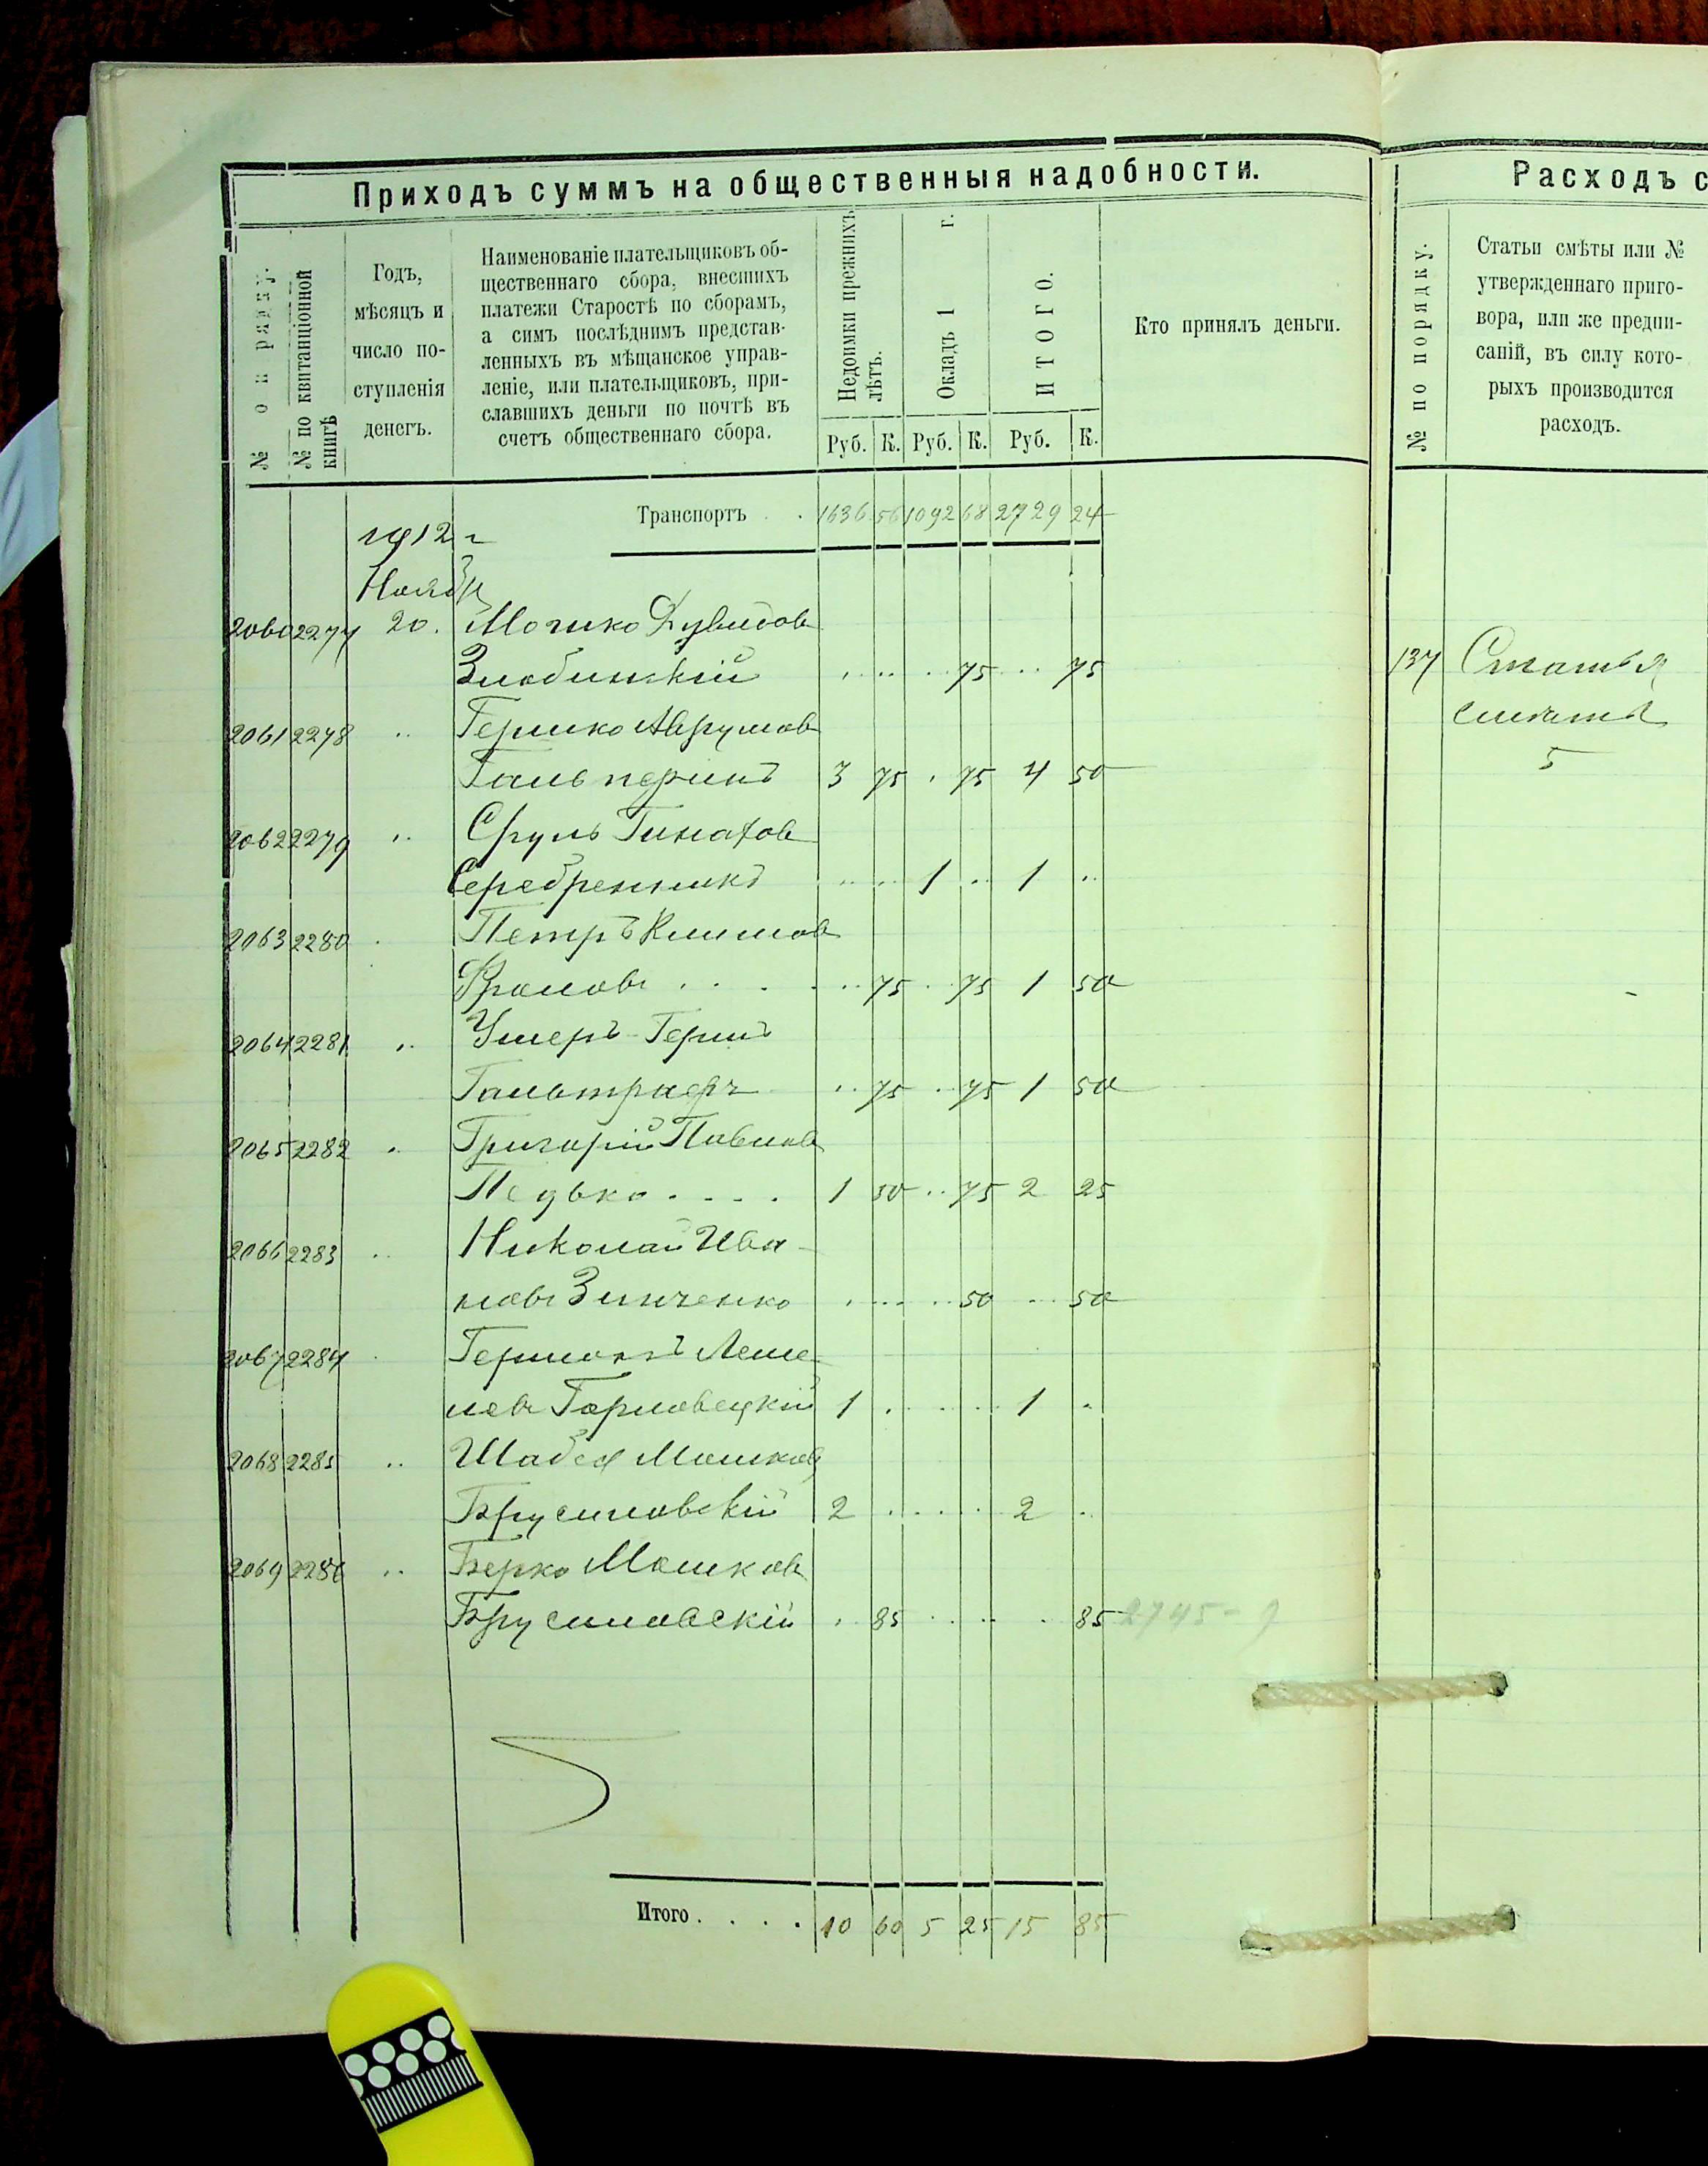 Приходъ суммъ на общественныя надобности.
№ по квитанціонной книгѣ
Годъ,
мѣсяцъ и
число по-
ступленія
денегъ.
Наименованіе плательщиковъ об-
щественнаго сбора, внесшихъ
платежи Старостѣ по сборамъ,
а симъ послѣднимъ представ-
ленныхъ въ мѣщанское управ-
леніе, или плательщиковъ, при-
славшихъ деньги по почтѣ въ
счетъ общественнаго сбора.
Недоимки прежнихъ лѣтъ.
Окладъ 1 г.
ИТОГО.
Руб. К. Руб. К. Руб. К.
Кто принялъ деньги.
Транспортъ 1636 56 1092 68 2729 24
1912 г
Ноябр
2060 2277 20. Мошко Дувидов
Злобинскій 75 75
2061 2278 Гершко Аврумов
Гальперинъ 3 75 75 4 50
2062 2279 Сруль
Серебренникъ 1 1
2063 2280 Петръ Климов
75 75 1 50
2064 2281 Ушеръ Герш
75 75 1 50
2065 2282 Григорій Павлов
1 50 75 2 25
2066 2283 Николай Ива-
новъ Зинченко 50 50
2067 2284
1 1
2068 2285 Мошков
Брусиловскій 2 2
2069 2286 Берко Мошков
Брусиловскій 85 85 2745-9
Итого 10 60 5 25 15 85
Расходъ с
№ по порядку.
Статьи смѣты или №
утвержденнаго приго-
вора, или же предпи-
саній, въ силу кото-
рыхъ производится
расходъ.
137 Статья
сметы
5